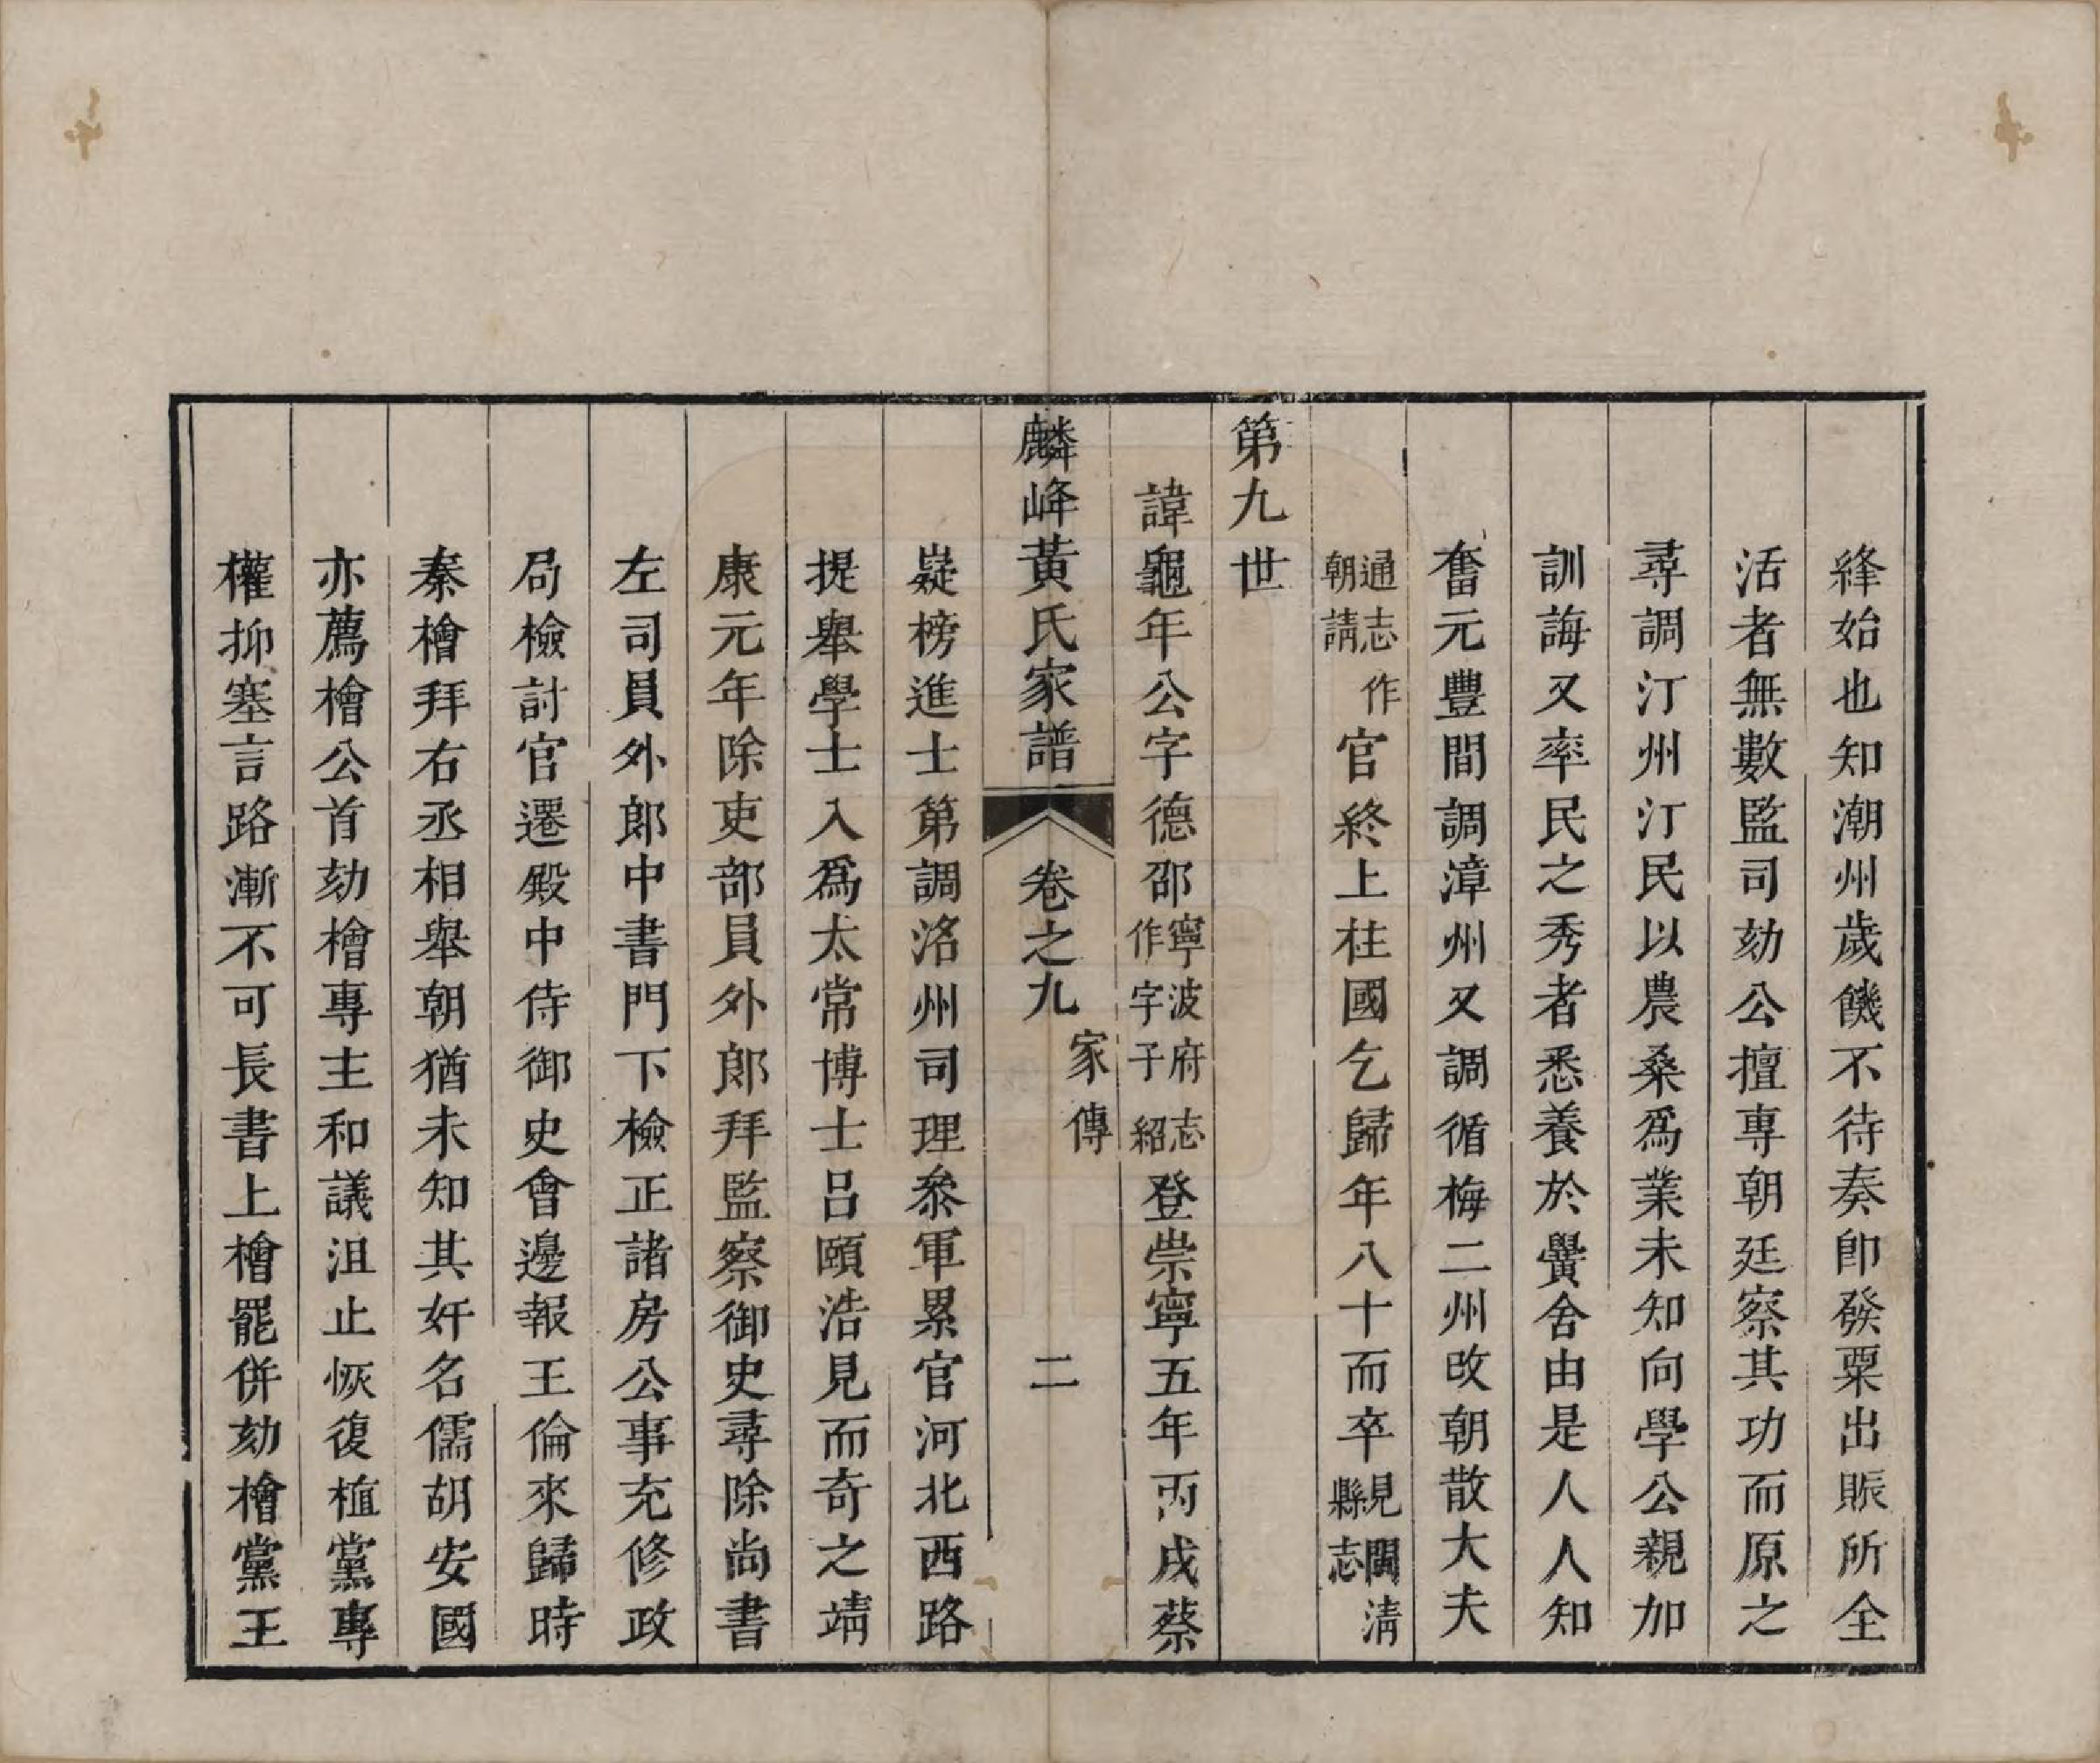 絳始也知潮州歲饑不待奏卽發粟出賑所全
活者無數監司劾公擅專朝廷察其功而原之
尋調汀州汀民以農桑爲業未知向學公親加
訓誨又率民之秀者悉養於黌舍由是人人知
奮元豐間調漳州又調循梅二州改朝散大夫
通志作朝請官終上柱國乞歸年八十而卒見閩清縣志
第九世
諱龜年公字德邵寧波府志作字子紹登崇寧五年丙戌蔡
麟峰黃氏家譜 卷之九 家傳 二
嶷榜進士第調洺州司理叅軍累官河北西路
提舉學士入爲太常博士呂頤浩見而奇之靖
康元年除吏部員外郞拜監察御史尋除尚書
左司員外郞中書門下檢正諸房公事充修政
局檢討官遷殿中侍御史會邊報王倫來歸時
秦檜拜右丞相舉朝猶未知其奸名儒胡安國
亦薦檜公首劾檜專主和議沮止恢復植黨專
權抑塞言路漸不可長書上檜罷併劾檜黨王